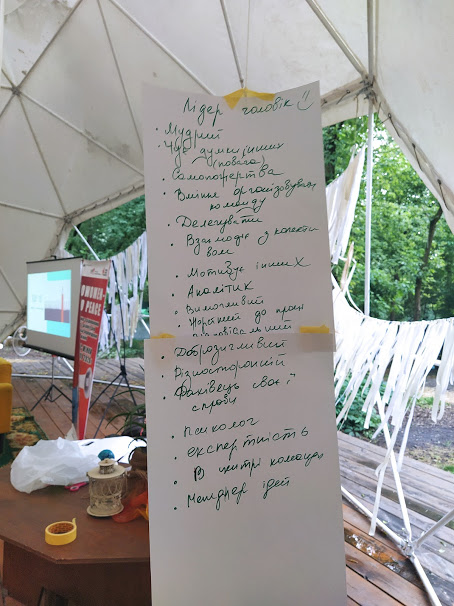 Лідер чоловік
• Мудрий
• Чує думки інших
(повага)
• Самопожертва
• Вміння організовувати
команду
• Делегувати
• Взаємодіє з колекти
вом
• Мотивує інших
• Аналітик
• Вимогливий
• Жорсткий до
• Доброзичливий
• Різносторонній
• Фахівець своєї
справи
• Психолог
• експертність
• В центрі команди
• Менеджер ідей
#WOMEN
PEACE